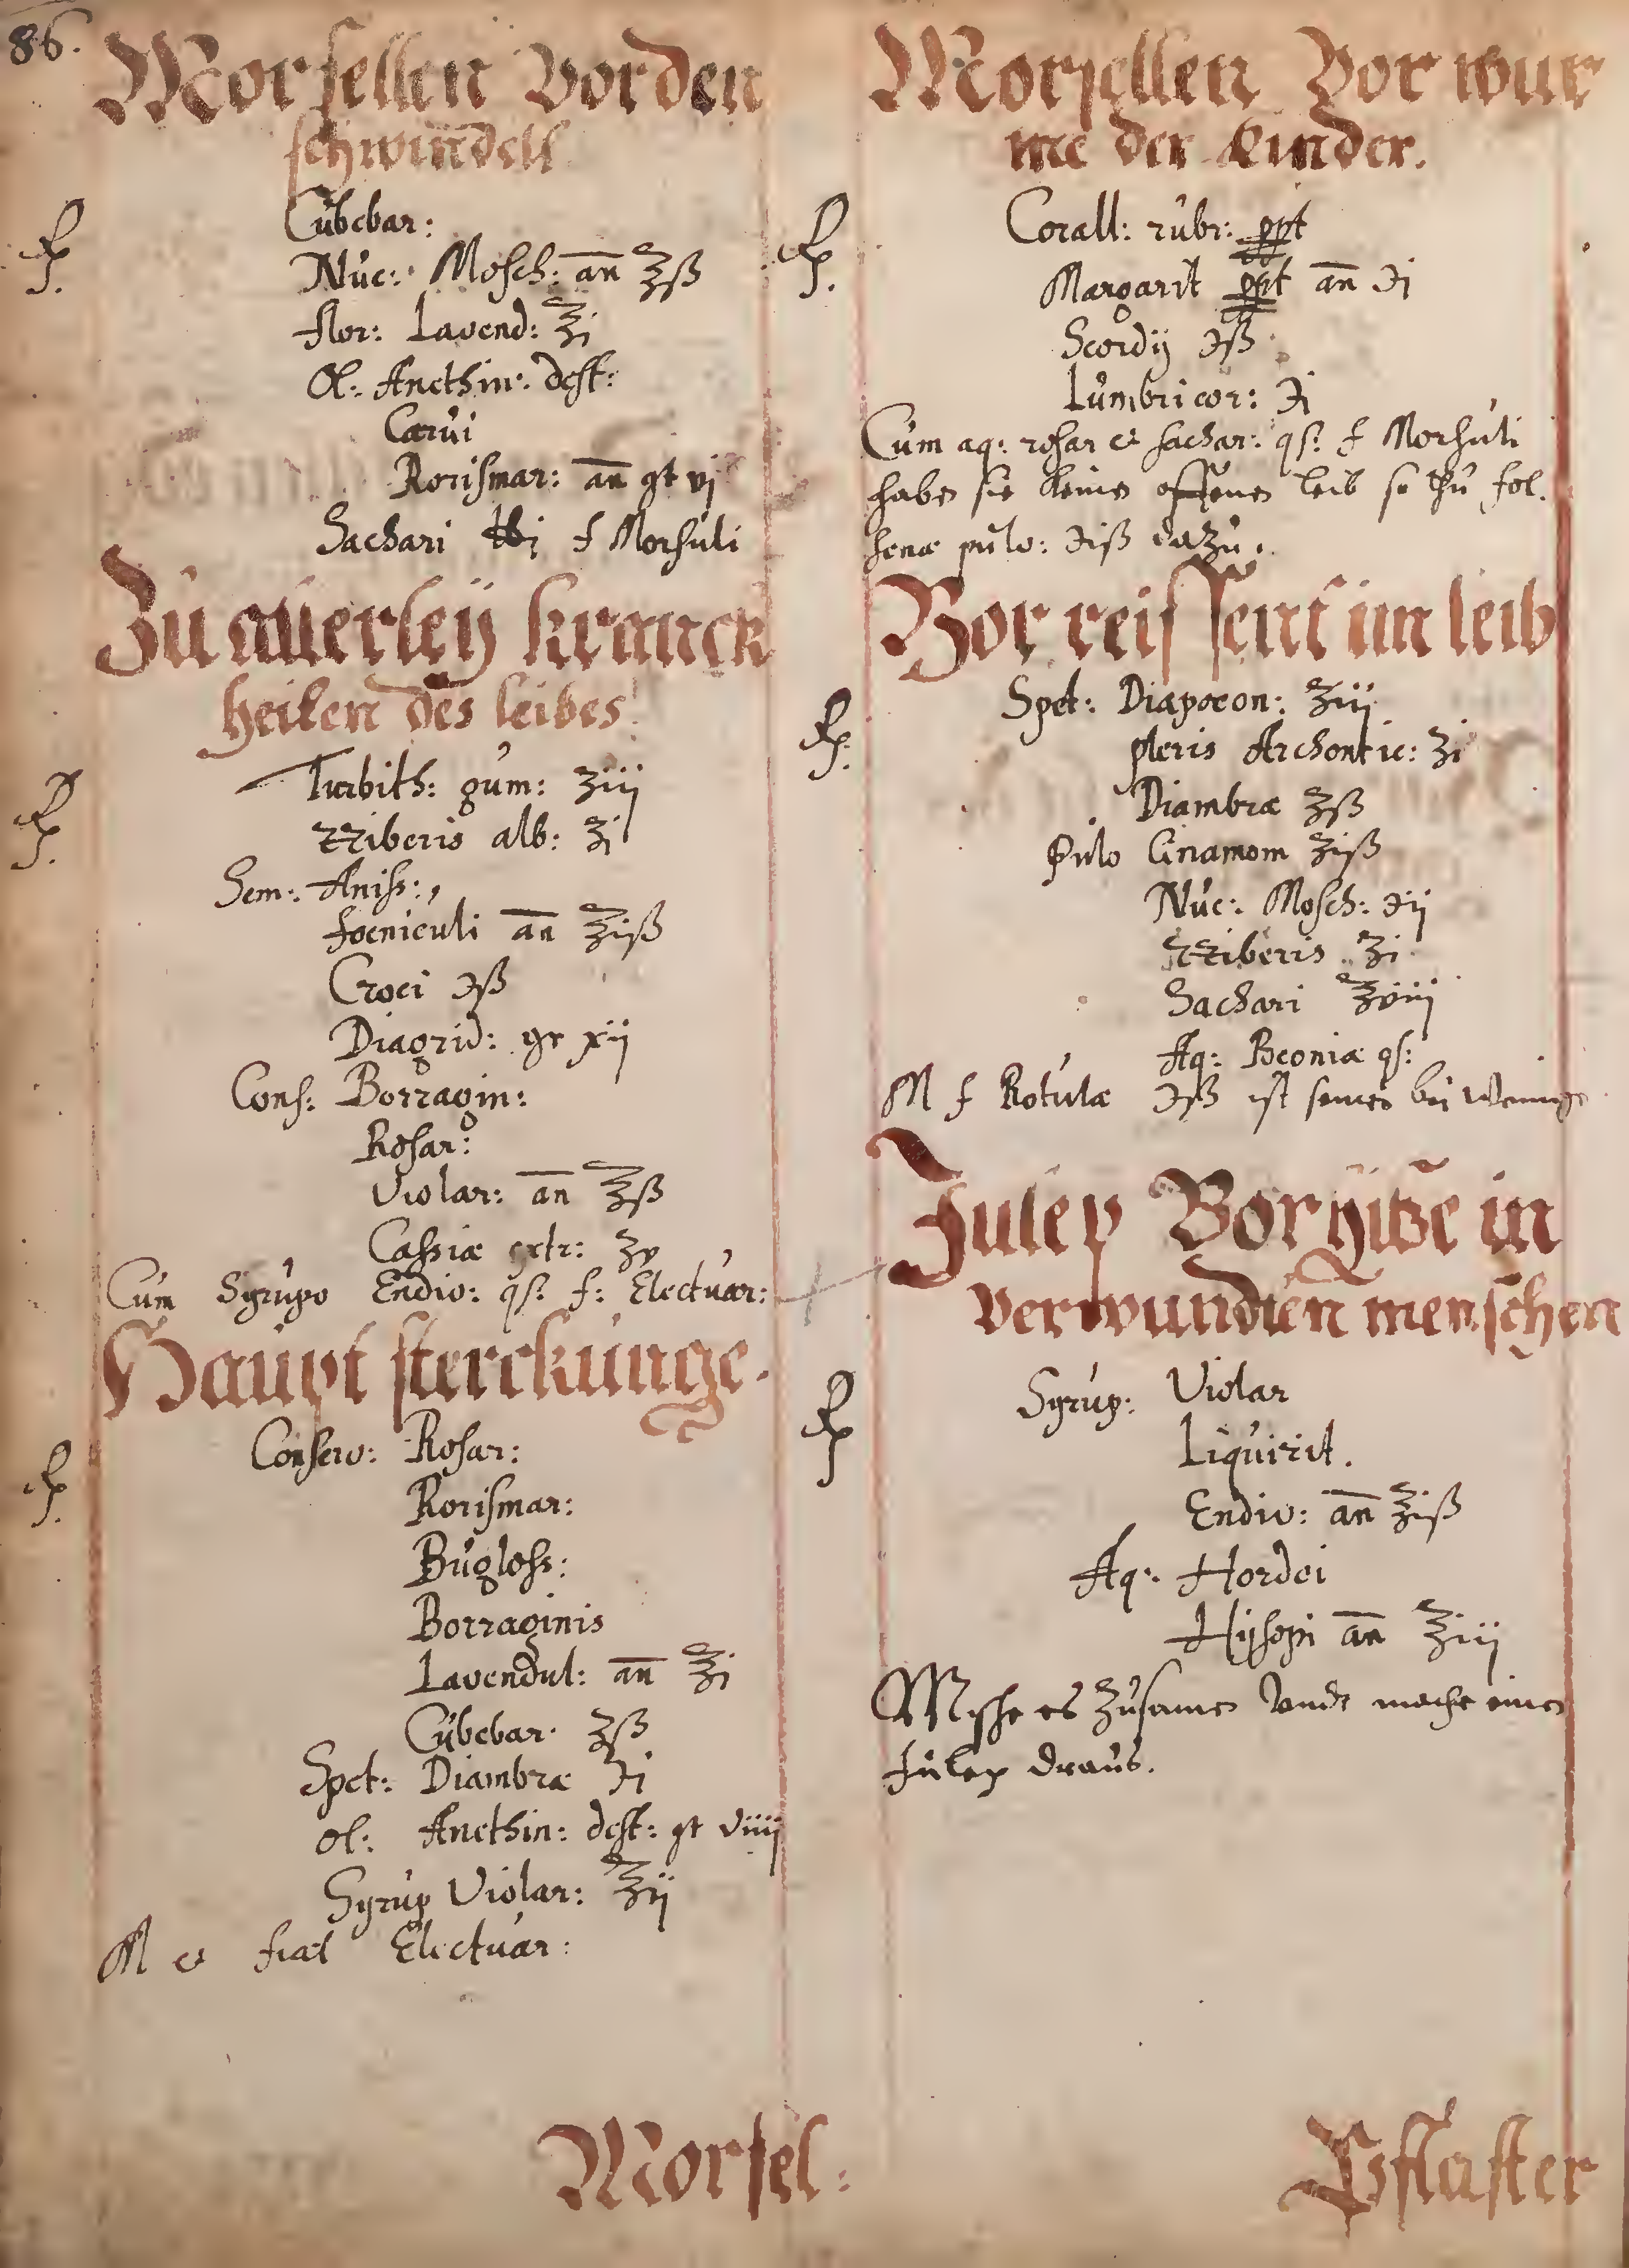 86.
Morsellen Vor den
schwindell
Cubebar:
Rp. Nuc: Mosch: an ℥ß
flor: Lavend: ℥j
Ol: Anethin: dest:
Carui
Rorismar: an gt vj
Sachari ℔j f Morsuli
Zu allerley kranck
heiten des leibes
Turbith: gum: ʒiij
Rp. Zziberis alb: ʒj
Sem: Aniss:
foeniculi an ℥iß
Croci ℈ß
Diagrid: gr xij
Cons: Borragin:
Rosar:
Violar: an ℥ß
Cassiæ extr: ʒv
Cum Syrupo Endiv: qs: f: Electuar:
Haupt sterckunge.
Conserv: Rosar:
Rp. Rorismar:
Bugloss:
Borraginis
Lavendul: an ℥j
Cubebar ʒß
Spet: Diambræ ℈j
ol: Anethin: dest: gt viiij
Syrup Violar: ℥ij
M et fiat Electuar:
Morsel:
Morsellen Vor wur
me der Kinder.
Rp. Corall: rubr: ppt
Margarit ppt an ℈j
Scordij ℈ß
Lumbricor: ℈j
Cum aq: rosar et sachar: qs: f Morsuli
haben sie keinen offenen leib so thu fol.
senæ pulv: ℈iß dazu.
Vor reissent im leib
Spet: Diapoeon: ʒiij
Rp. pleris Archontic: ʒj
Diambræ ʒß
Pulv Cinamom ʒiß
Nuc: Mosch: ℈ij
Zziberis ʒj
Sachari ℥viij
Aq: Beoniæ qs:
M f Rotulæ ℈ß ist
Julep Vor hitze in
verwundten menschen
Syrup: Violar
Rp. Liquirit.
Endiv: an ℥iß
Aq: Hordei
Hijsopi an ℥iij
Mische es zusamen vndt mache einen
Julep draus.
Pflaster